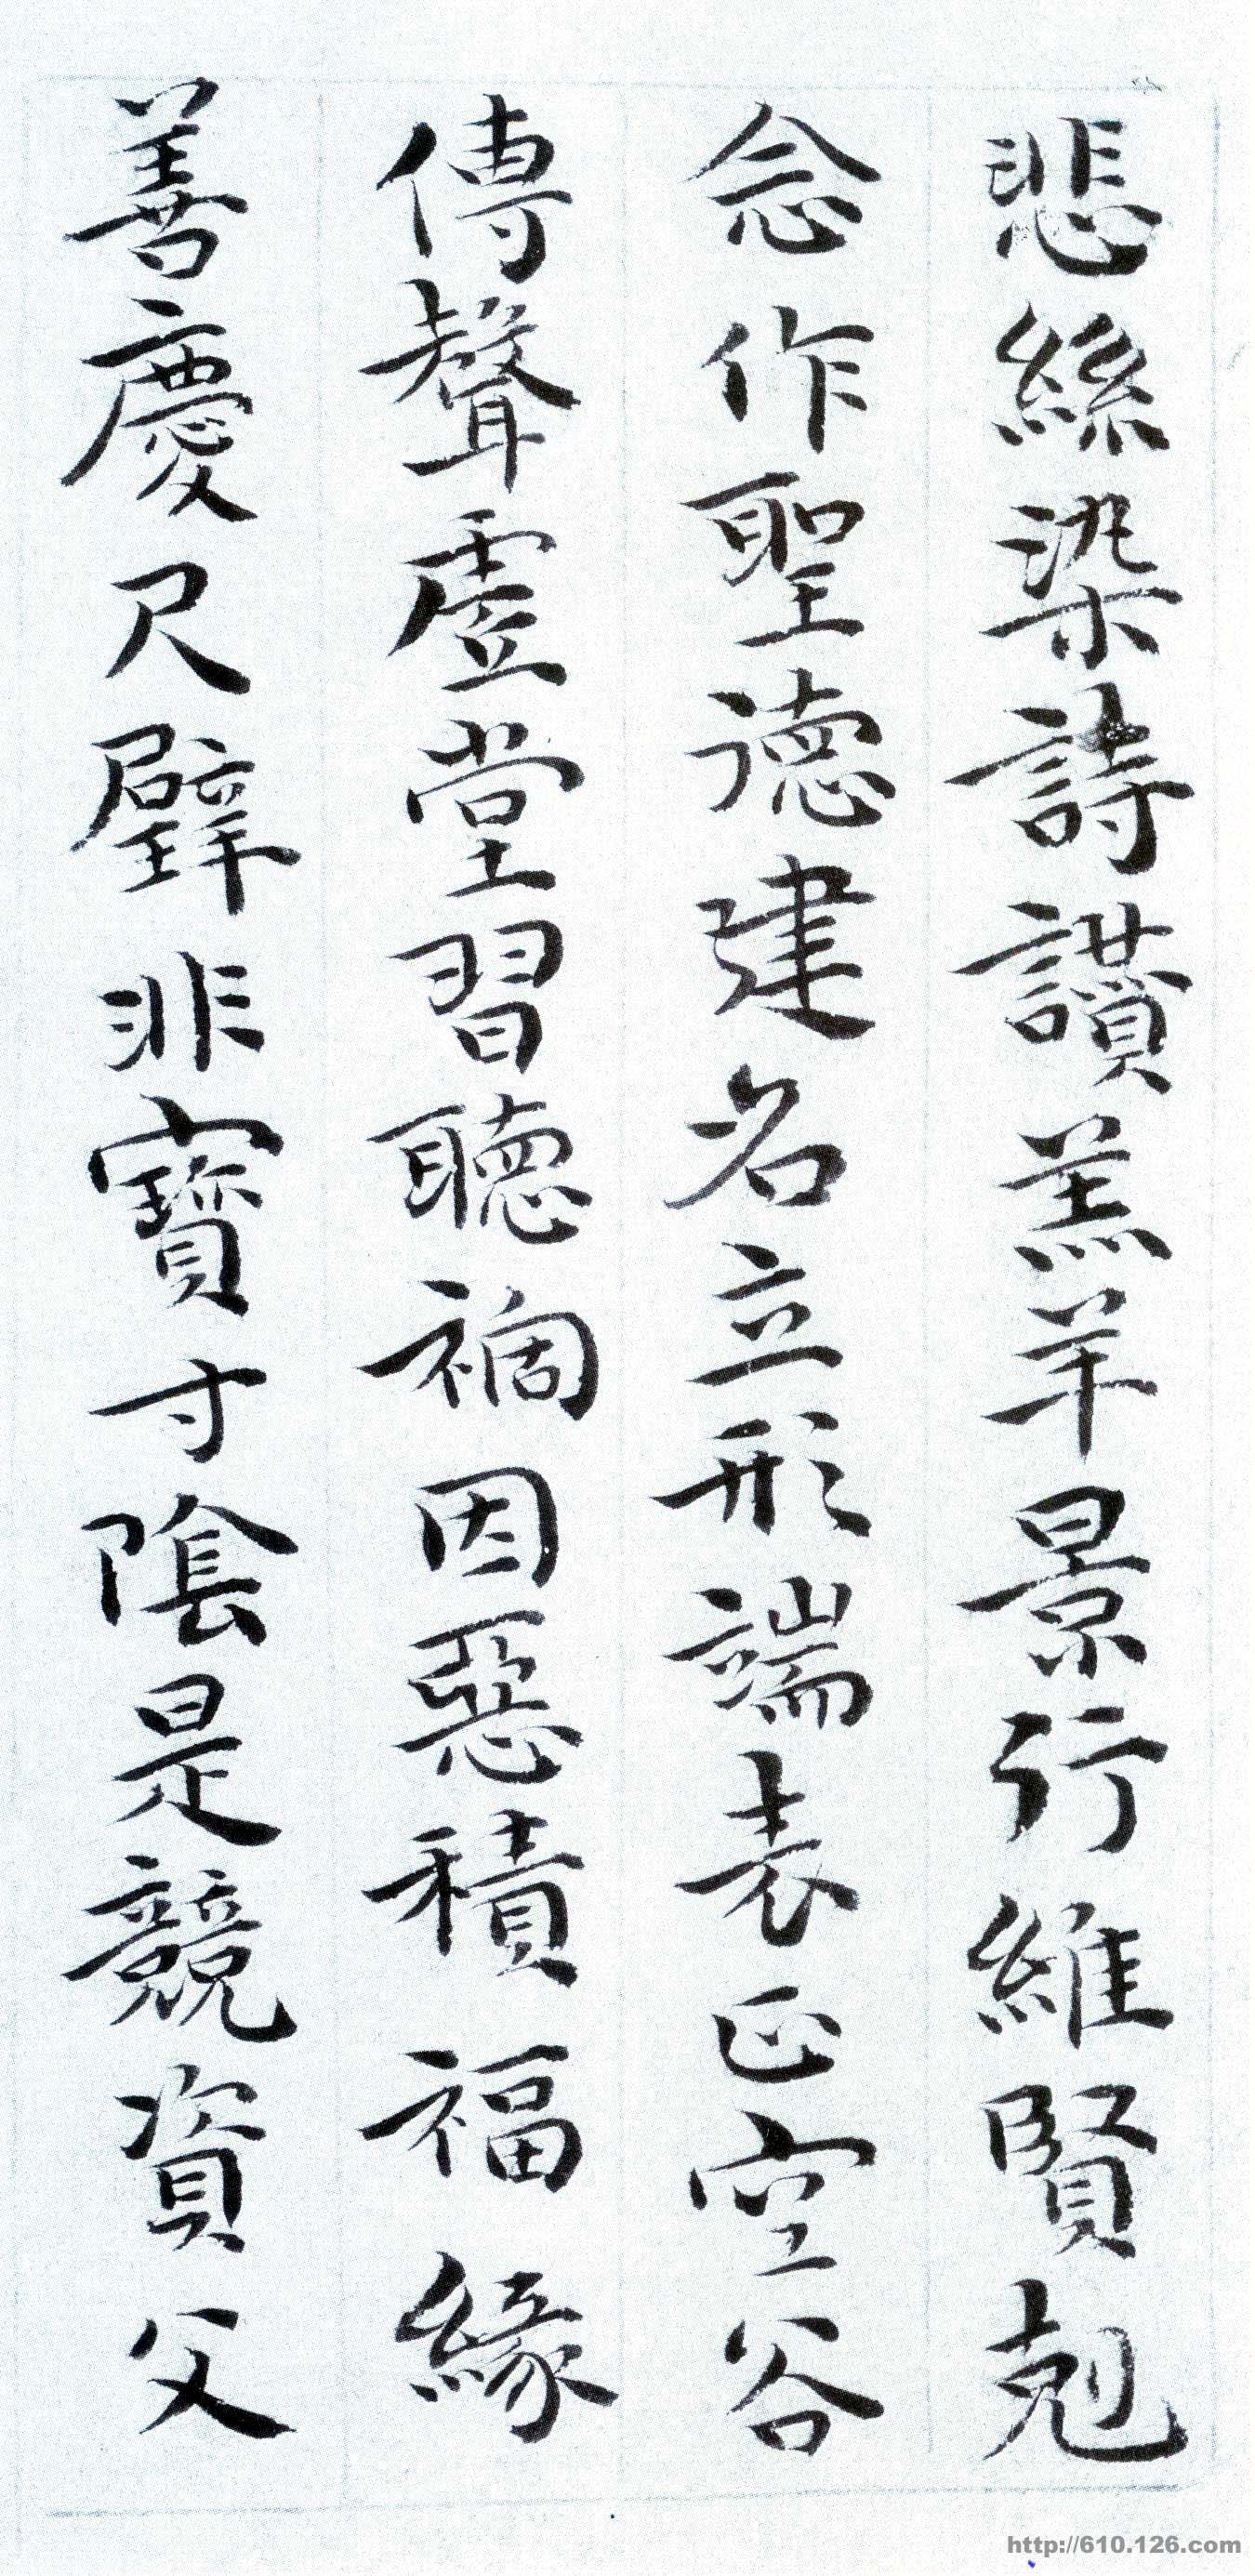 悲絲染詩讃羔羊景行維賢剋
念作聖德建名立形端表正空谷
傳聲虛堂習聽禍因惡積福緣
善慶尺璧非寶寸陰是競資父
http://610.126.com